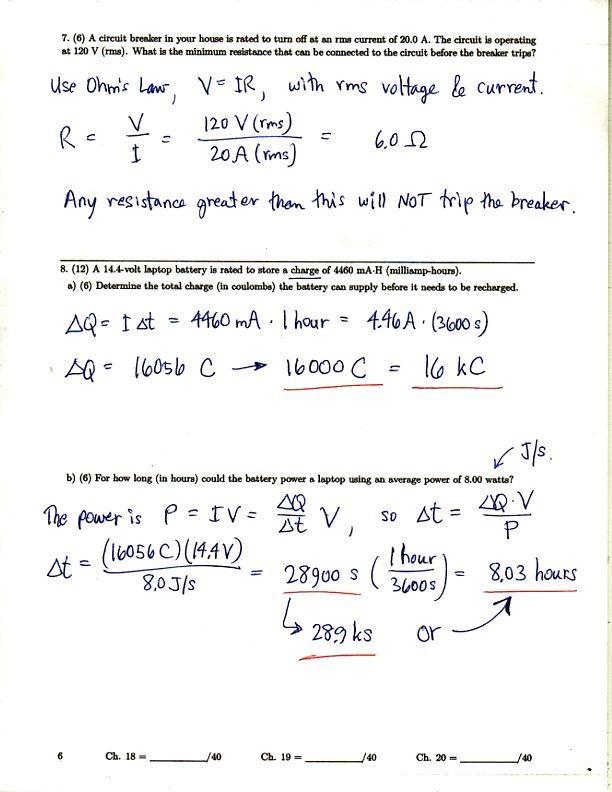 7. (6) A circuit breaker in your house is rated to turn off at an rms current of 20.0 A. The circuit is operating
at 120 V (rms). What is the minimum resistance that can be connected to the circuit before the breaker trips?
Use Ohm's Law, V = IR, with rms voltage & current.
R = V/I = 120 V (rms) / 20 A (rms) = 6.0 Ω
Any resistance greater than this will NOT trip the breaker.
8. (12) A 14.4-volt laptop battery is rated to store a charge of 4460 mA·H (milliamp-hours).
a) (6) Determine the total charge (in coulombs) the battery can supply before it needs to be recharged.
ΔQ = I Δt = 4460 mA · 1 hour = 4.46 A · (3600 s)
ΔQ = 16056 C → 16000 C = 16 kC
↙ J/s.
b) (6) For how long (in hours) could the battery power a laptop using an average power of 8.00 watts?
The power is P = IV = ΔQ/Δt V, so Δt = ΔQ·V/P
Δt = (16056 C)(14.4 V) / 8.0 J/s = 28900 s (1 hour / 3600 s) = 8.03 hours
↳ 28.9 ks or ↗
6 Ch. 18 = ________/40 Ch. 19 = ________/40 Ch. 20 = ________/40